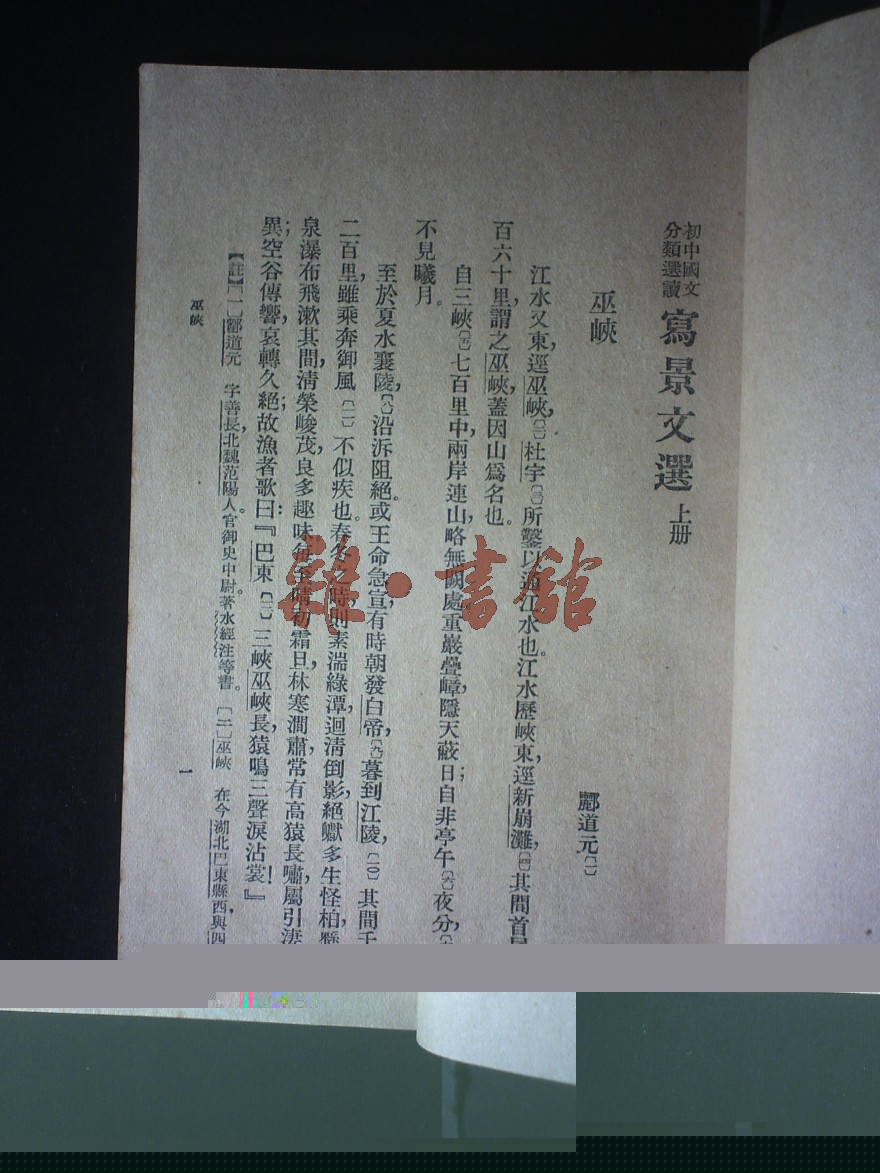 初中國文
分類選讀
寫景文選 上册
巫峽
酈道元〔一〕
江水又東，逕巫峽，〔二〕杜宇〔三〕所鑿以通江水也。江水歷峽東，逕新崩灘，〔四〕其間首尾
百六十里，謂之巫峽，蓋因山爲名也。
自三峽〔五〕七百里中，兩岸連山，略無闕處。重巖疊嶂，隱天蔽日；自非亭午〔六〕夜分，
不見曦月。
至於夏水襄陵，〔八〕沿泝阻絕。或王命急宣，有時朝發白帝，〔九〕暮到江陵，〔一〇〕其間千
二百里，雖乘奔御風〔一一〕不似疾也。春冬之時，則素湍綠潭，迴淸倒影，絕巘多生怪柏，懸
泉瀑布，飛漱其間，淸榮峻茂，良多趣味。每至晴初霜旦，林寒澗肅，常有高猿長嘯，屬引淒
異；空谷傳響，哀轉久絕；故漁者歌曰：『巴東〔一二〕三峽巫峽長，猿鳴三聲淚沾裳！』
【註】〔一〕酈道元 字善長，北魏范陽人。官御史中尉。著水經注等書。 〔二〕巫峽 在今湖北巴東縣西，與四
巫峽
一
書館